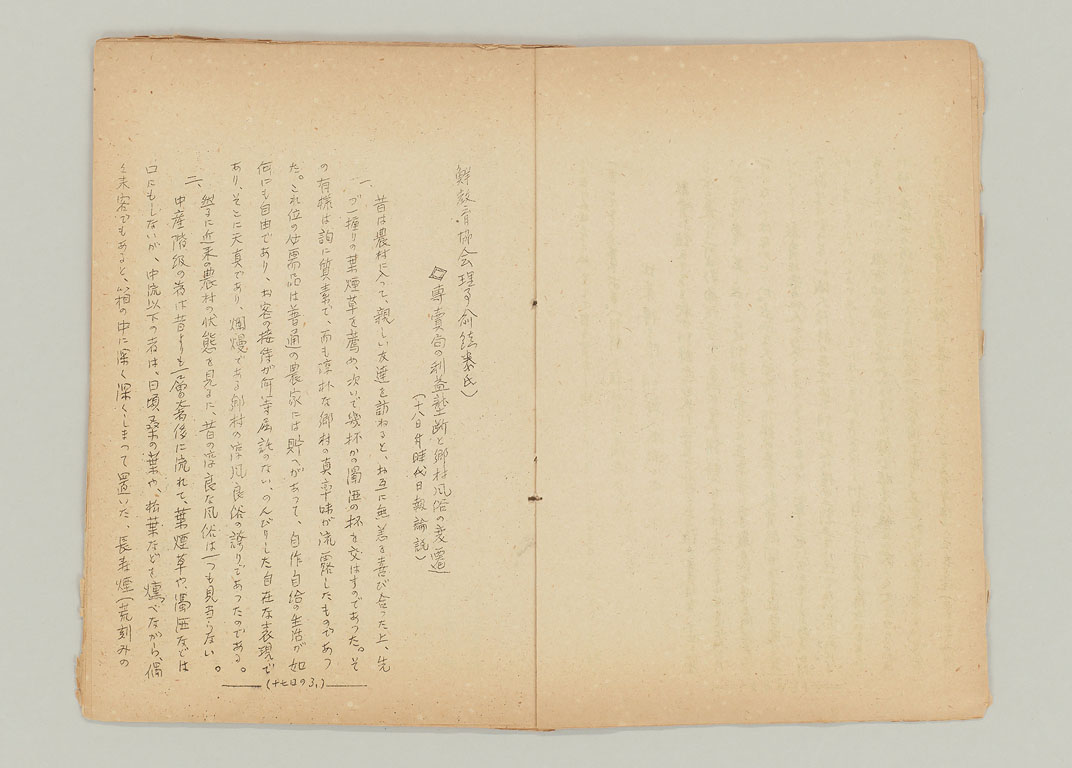 鮮教育協会理事俞鎮泰氏)
◇専賣局の利益壟断と郷村風俗の変遷
(十八日付時代日報論説)
一、
昔は農村に入って、親しい友達を訪ねると、お互に無恙を喜び合った上、先
づ一握りの葉煙草を薦め、次いで幾杯かの濁酒の杯を交はすのであった。そ
の有様は洵に質素で、而も淳朴な郷村の真の味が流露したものであっ
た。これ位の必需品は普通の農家には貯へがあって、自作自給の生活が如
何にも自由であり、お客の接待が何等屈託のない、のんびりした自在な表現で
あり、そこに天真であり、爛熳である郷村の淳風良俗の誇りであったのである。
然るに近来の農村の状態を見るに、昔の淳良な風俗は一つも見当らない。
二、
中産階級の者は昔よりも一層奢侈に流れて、葉煙草や、濁酒などは
口にもしないが、中流以下の者は、日頃桑の葉や、柏葉などを燻べながら、偶
々来客でもあると、箱の中に深く深くしまって置いた、長寿煙(荒刻みの
(十七日の3,)